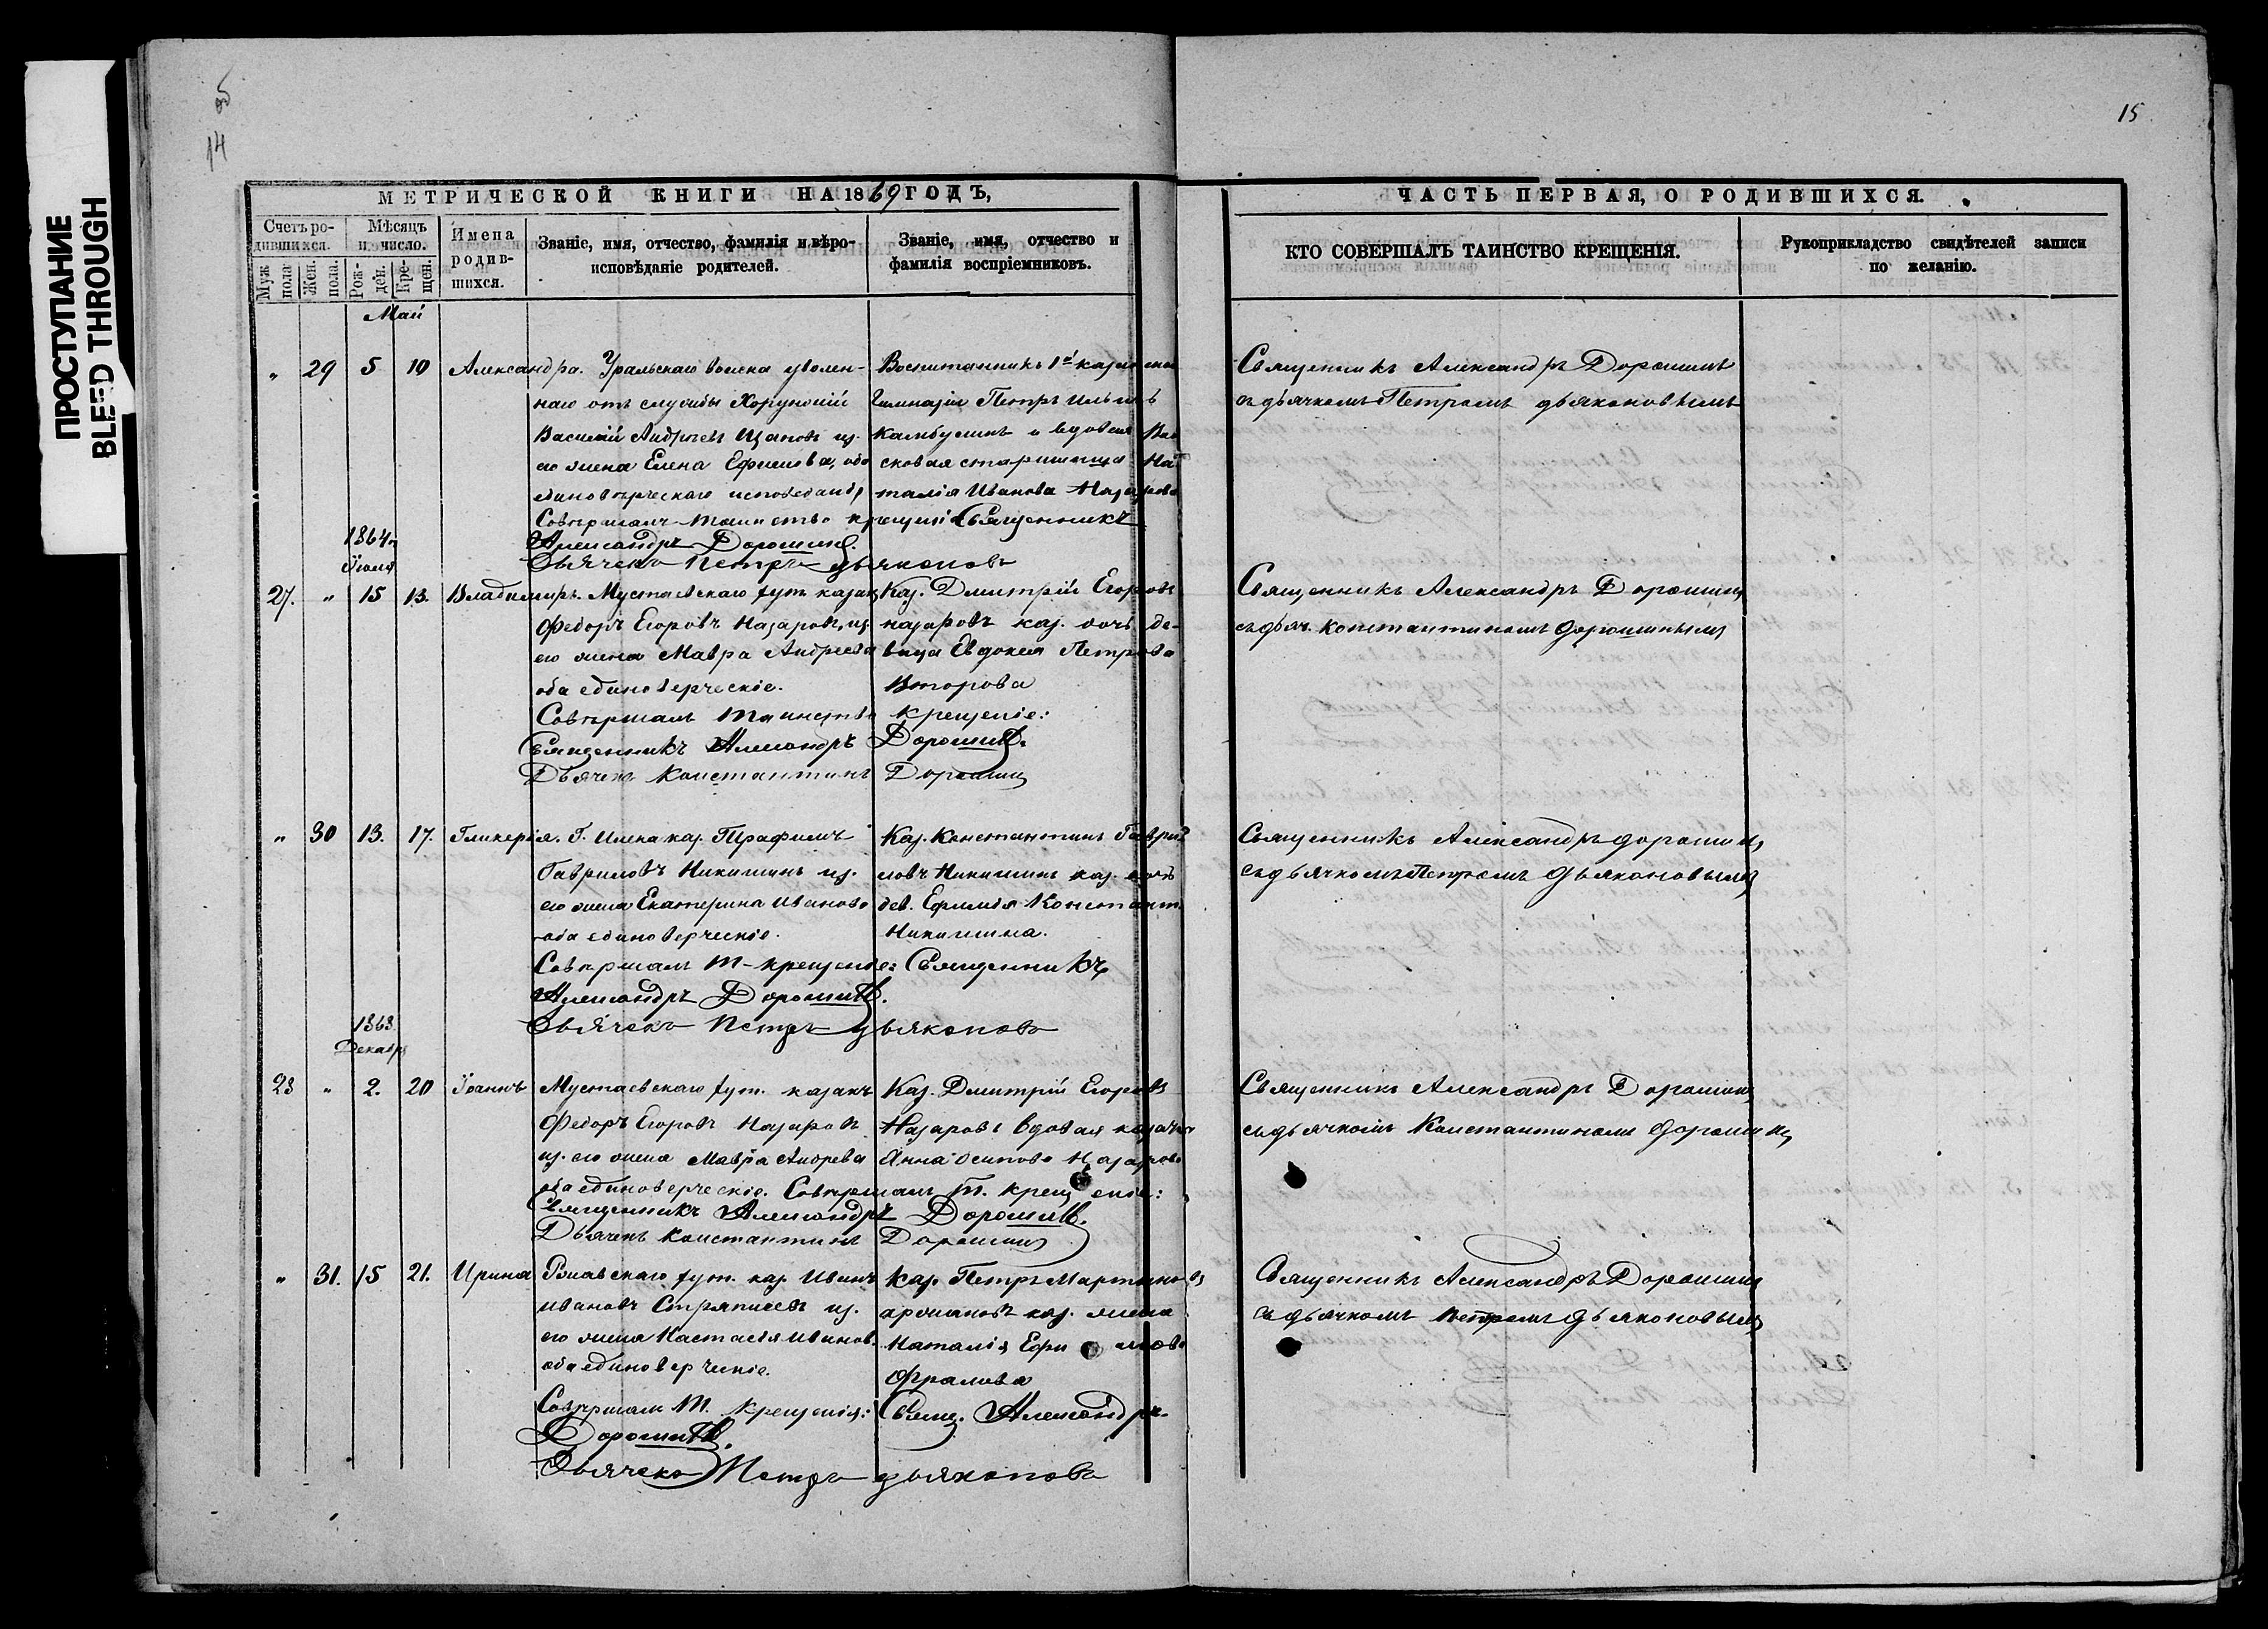 ПРОСТУПАНИЕ
BLEED THROUGH
об
14
15
МЕТРИЧЕСКОЙ КНИГИ НА 1869 ГОДЪ,
Счетъ ро-
дившихся.
Муж. пола
Жен. пола.
Мѣсяцъ
и число.
Рож-
ден.
Кре-
щен.
Имена
родив-
шихся.
Званіе, имя, отчество, фамилія и вѣро-
исповѣданіе родителей.
Званіе, имя, отчество и
фамилія воспріемниковъ.
ЧАСТЬ ПЕРВАЯ, О РОДИВШИХСЯ.
КТО СОВЕРШАЛЪ ТАИНСТВО КРЕЩЕНІЯ.
Рукоприкладство свидѣтелей записи
по желанію.
Май
„ 29 5 10 Александра. Уральскаго войска уволен-
наго отъ службы Хорунжій
Василій Андреевъ из.
его жена Елена Ефимова, оба
единовѣрческаго исповеданія
Воспитанникъ 1й казанской
Гимназіи Петръ Ильинъ
Камбулинъ и вдовая Вой
сковая старшинша На
талія Иванова Назарова
Совершалъ таинство крещенія Священникъ
Александръ Дорошинъ.
Дьячекъ Петръ Дьяконовъ
Священникъ Александръ Дорошинъ
съ дьячкомъ Петромъ Дьяконовымъ
1864 г.
Іюля
27. „ 15 13. Владимиръ. Мустаевскаго хут. казакъ
Федоръ Егоровъ Назаровъ, из
его жена Мавра Андреева
оба единоверческіе.
Каз. Дмитрій Егоровъ
Назаровъ каз. дочь де-
вица Евдокея Петрова
Второва
Совершалъ таинство крещеніе:
Священникъ Александръ Дорошинъ.
Дьячекъ Константинъ Дорошинъ
Священникъ Александръ Дорошинъ
съ дьяч. Константиномъ Дорошинымъ
„ 30 13. 17. Гликерія. Г. Илека каз. Трафимъ
Гавриловъ Никишинъ из.
его жена Екатерина Иванова
оба единоверческіе.
Каз. Константинъ Гаври
ловъ Никишинъ каз. дочь
дев. Ефимія Констант.
Никишина.
Совершалъ т. крещеніе: Священникъ
Александръ Дорошинъ.
Дьячекъ Петръ Дьяконовъ
Священникъ Александръ Дорошинъ
съ дьячкомъ Петромъ Дьяконовымъ
1868
Декабря
28 „ 2. 20 Іоаннъ Мустаевскаго хут. казакъ
Федоръ Егоровъ Назаровъ
из. его жена Мавра Андреева
оба единоверческіе.
Каз. Дмитрій Егоровъ
Назаровъ вдовая казачка
Анна Осипова Назарова
Совершалъ т. крещеніе:
Священникъ Александръ Дорошинъ.
Дьячекъ Константинъ Дорошинъ
Священникъ Александръ Дорошинъ
съ дьячкомъ Константиномъ Дорошинъ
„ 31. 15 21. Ирина хут. каз. Иванъ
Ивановъ из.
его жена Настасія Иванов.
оба единоверческіе.
Каз. Петръ Мартыновъ
каз. жена
Наталія Ефимова
Фралова
Совершалъ т. крещенія: Свящ. Александръ
Дорошинъ.
Дьячекъ Петръ Дьяконовъ
Священникъ Александръ Дорошинъ
съ дьячкомъ Петромъ Дьяконовымъ